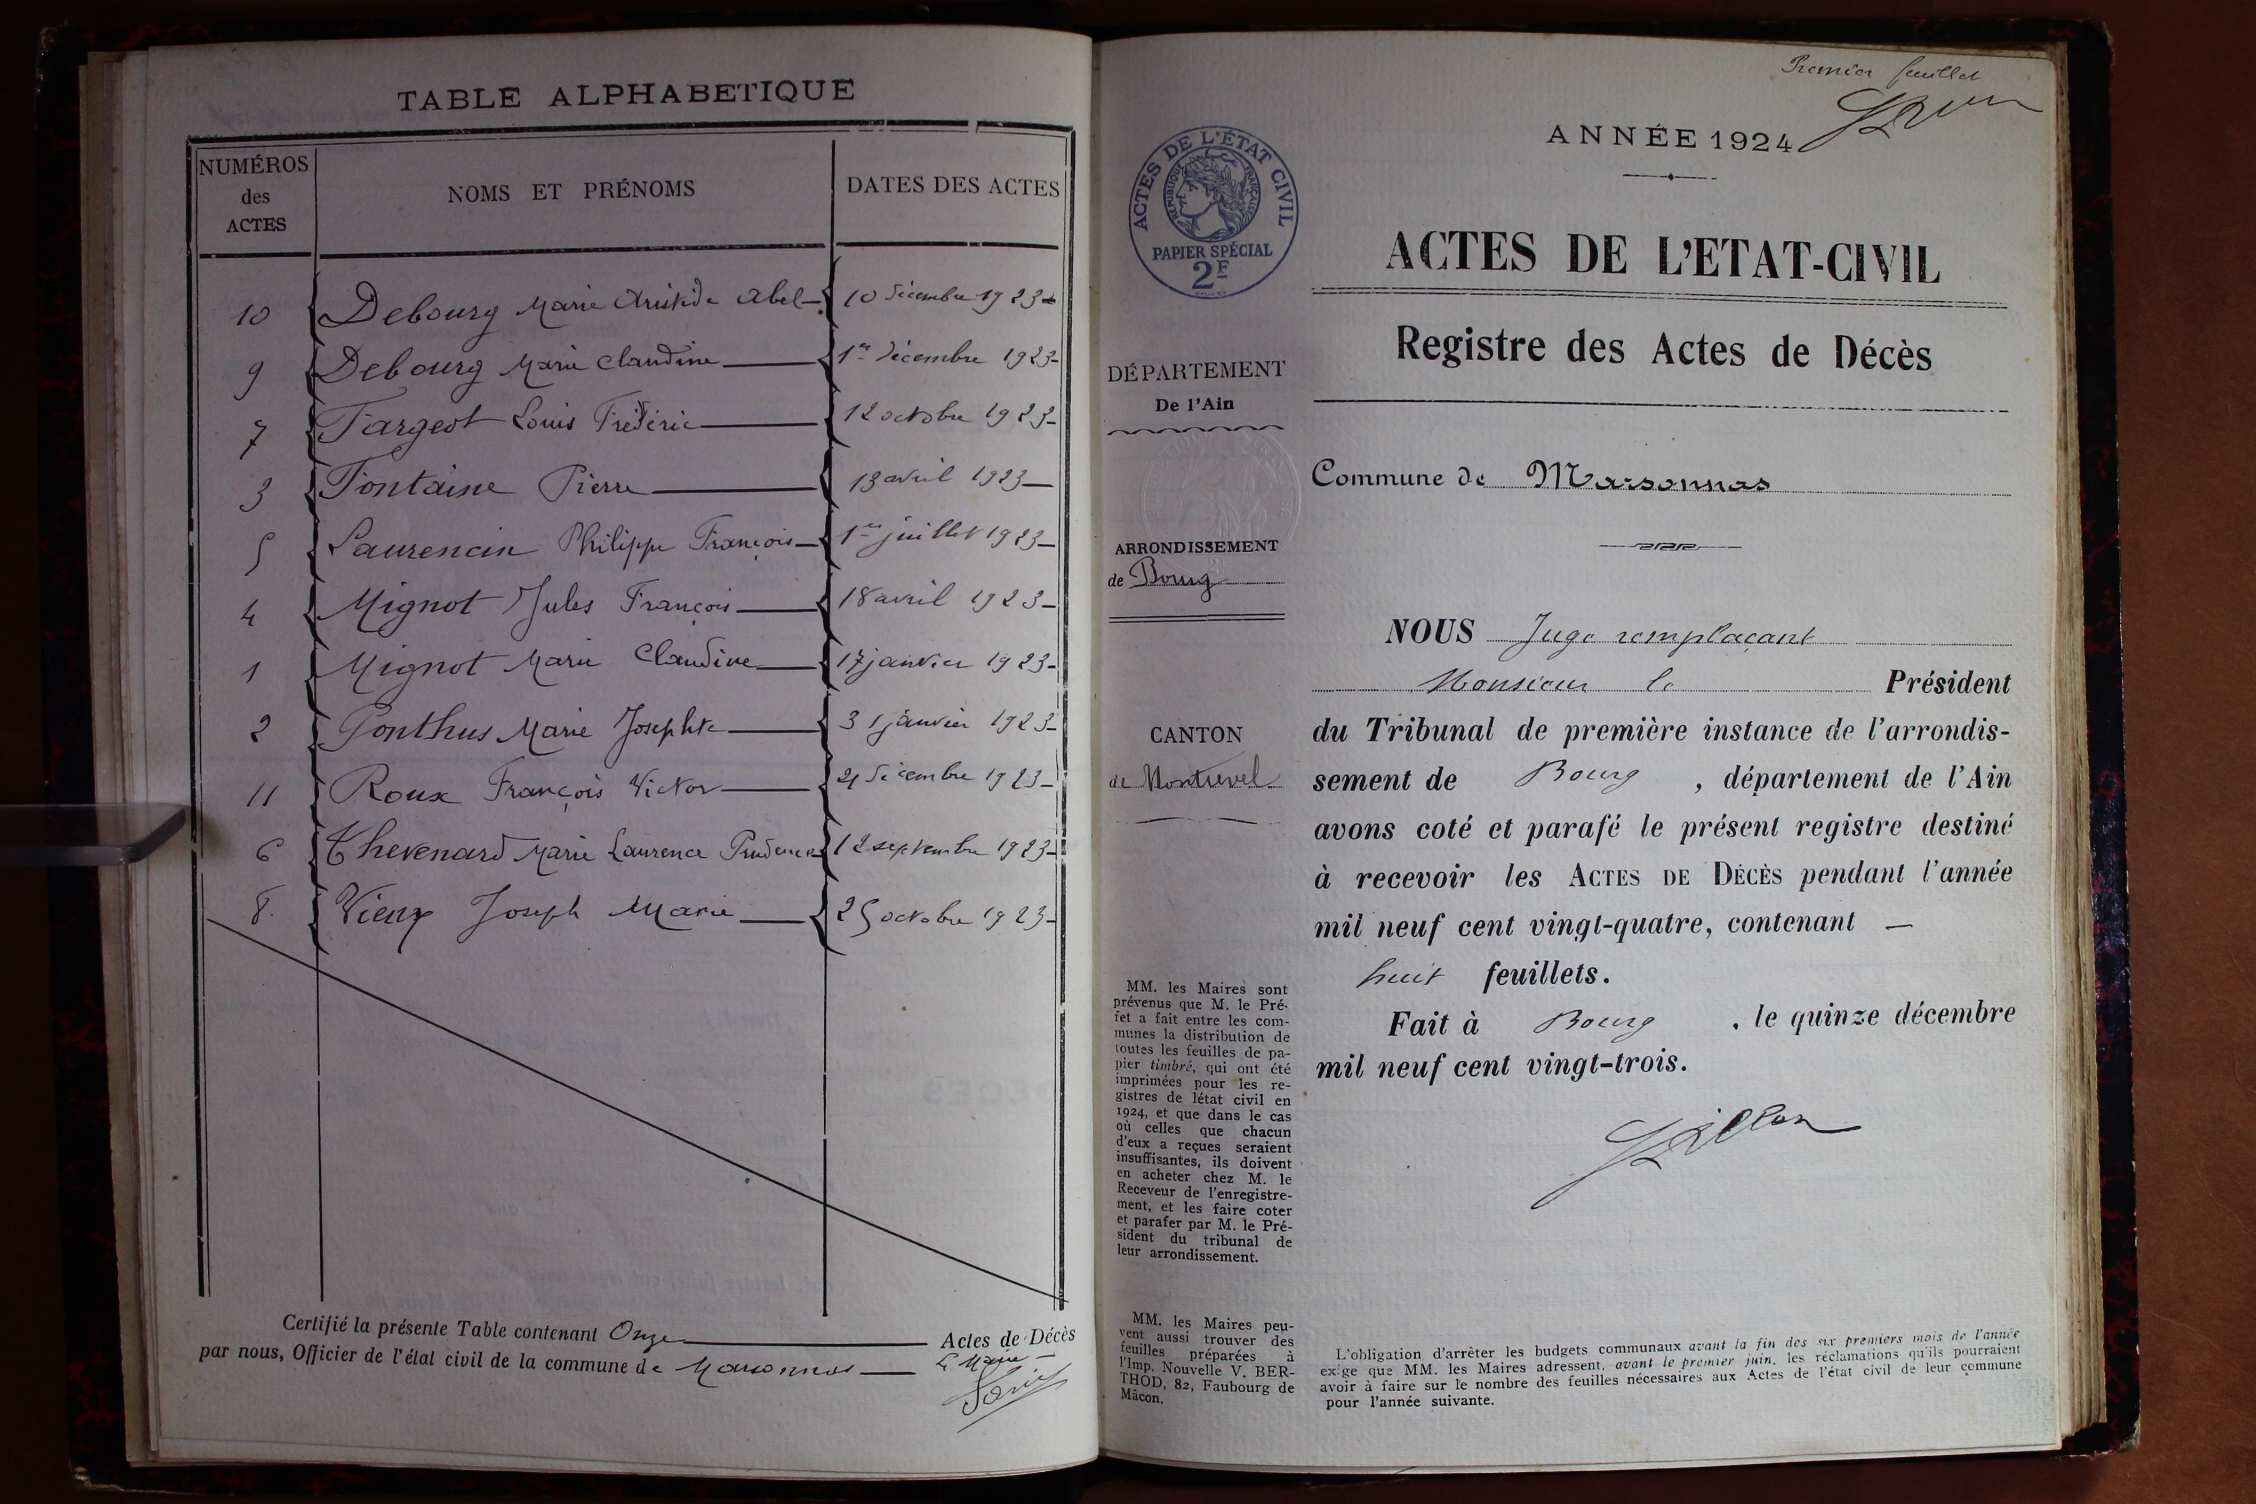 TABLE ALPHABETIQUE
NUMÉROS
des
ACTES
NOMS ET PRÉNOMS
DATES DES ACTES
10 Debourg Marie Aristide Abel 10 décembre 1923
9 Debourg Marie Claudine 1er décembre 1923
7 Fargeot Louis Frédéric 12 octobre 1923
3 Fontaine Pierre 13 avril 1923
5 Laurencin Philippe François 1er juillet 1923
4 Mignot Jules François 18 avril 1923
1 Mignot Marie Claudine 17 janvier 1923
2 Ponthus Marie Josephte 31 janvier 1923
11 Roux François Victor 21 décembre 1923
6 Thevenard Marie Laurence Prudence 12 septembre 1923
8 Vieux Joseph Marie 25 octobre 1923
Certifié la présente Table contenant Onze Actes de Décès
par nous, Officier de l'état civil de la commune de Marsonnas
Le Maire
Premier feuillet
ANNÉE 1924
ACTES DE L'ÉTAT CIVIL
RÉPUBLIQUE FRANÇAISE
PAPIER SPÉCIAL
2F
DÉPARTEMENT
De l'Ain
ARRONDISSEMENT
de Bourg
CANTON
de Montrevel
MM. les Maires sont
prévenus que M. le Pré-
fet a fait entre les com-
munes la distribution de
toutes les feuilles de pa-
pier timbré, qui ont été
imprimées pour les re-
gistres de létat civil en
1924, et que dans le cas
où celles que chacun
d'eux a reçues seraient
insuffisantes, ils doivent
en acheter chez M. le
Receveur de l'enregistre-
ment, et les faire coter
et parafer par M. le Pré-
sident du tribunal de
leur arrondissement.
MM. les Maires peu-
vent aussi trouver des
feuilles préparées à
l'Imp. Nouvelle V. BER-
THOD, 82, Faubourg de
Mâcon.
ACTES DE L'ETAT-CIVIL
Registre des Actes de Décès
Commune de Marsonnas
NOUS Juge remplaçant
Monsieur le Président
du Tribunal de première instance de l'arrondis-
sement de Bourg, département de l'Ain
avons coté et parafé le présent registre destiné
à recevoir les ACTES DE DÉCÈS pendant l'année
mil neuf cent vingt-quatre, contenant —
huit feuillets.
Fait à Bourg, le quinze décembre
mil neuf cent vingt-trois.
L'obligation d'arrêter les budgets communaux avant la fin des six premiers mois de l'année
exige que MM. les Maires adressent, avant le premier juin, les réclamations qu'ils pourraient
avoir à faire sur le nombre des feuilles nécessaires aux Actes de l'état civil de leur commune
pour l'année suivante.